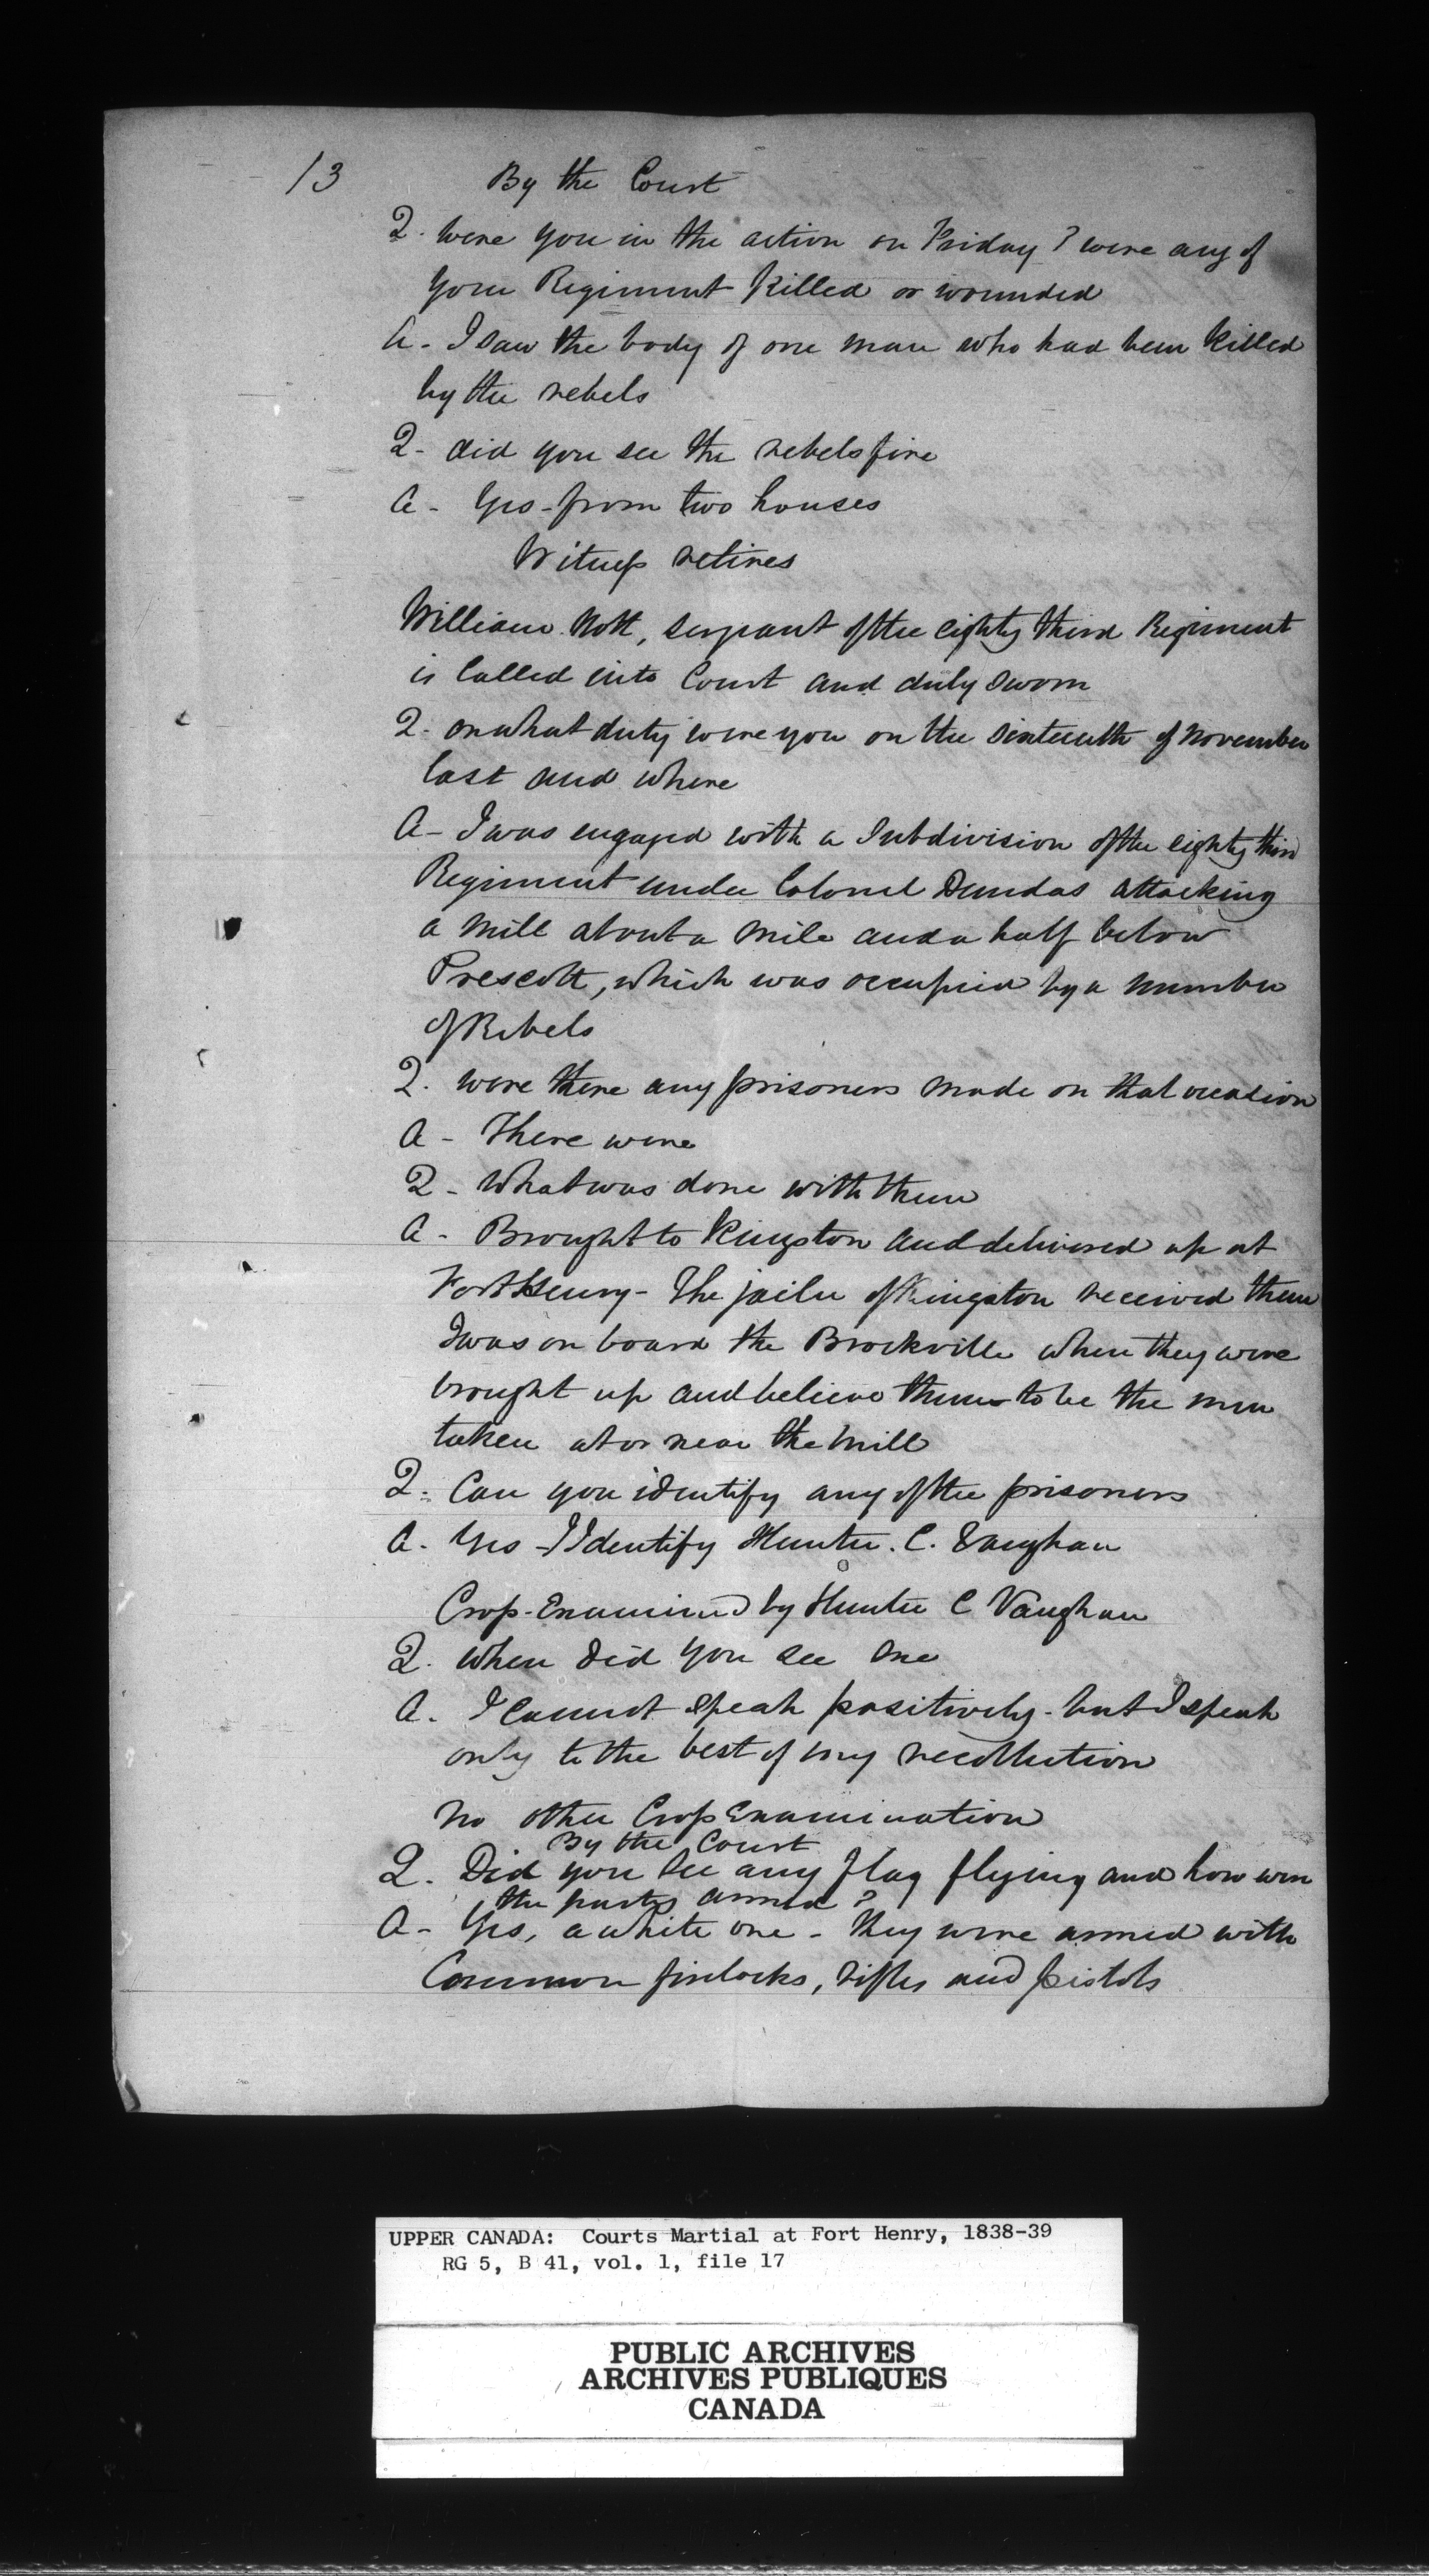 13
By the Court
Q. were you in the action on Friday? were any of
your Regiment killed or wounded
A - I saw the body of one man who had been killed
by the rebels
Q - did you see the rebels fire
A - Yes - from two houses
Witness retires
William Nott, serjeant of the eighty third Regiment
is called into Court and duly sworn
Q - on what duty were you on the sixteenth of November
last and where
A - I was engaged with a Subdivision of the eighty third
Regiment under Colonel Dundas attacking
a Mill about a mile and a half below
Prescott, which was occupied by a number
of Rebels
Q. were there any prisoners made on that occasion
A - There were
Q - What was done with them
A - Brought to Kingston and delivered up at
Fort Henry - The jailer of Kingston received them
I was on board the Brockville when they were
brought up and believe them to be the men
taken at or near the Mill
Q - Can you identify any of the prisoners
A. Yes - I Identify Hunter. C. Vaughan
Cross-Examined by Hunter C Vaughan
Q. When did you see me
A. I cannot speak positively - but I speak
only to the best of my recollection
No other Cross Examination
By the Court
Q. Did you see any flag flying and how were
the party armed?
A - Yes, a white one - they were armed with
Common firelocks, rifles and pistols
UPPER CANADA: Courts Martial at Fort Henry, 1838-39
RG 5, B 41, vol. 1, file 17
PUBLIC ARCHIVES
ARCHIVES PUBLIQUES
CANADA